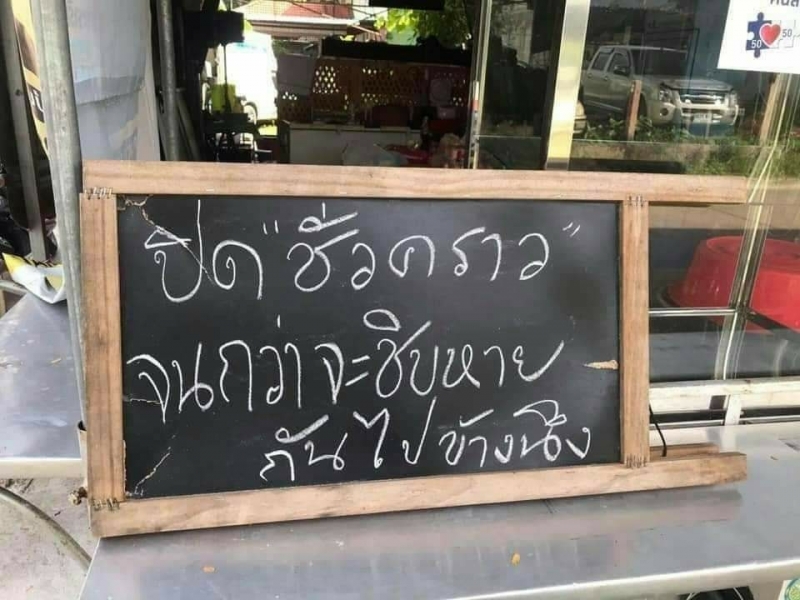 ปิด "ชั่วคราว"
จนกว่าจะชิบหาย
กันไปข้างนึง
50 50